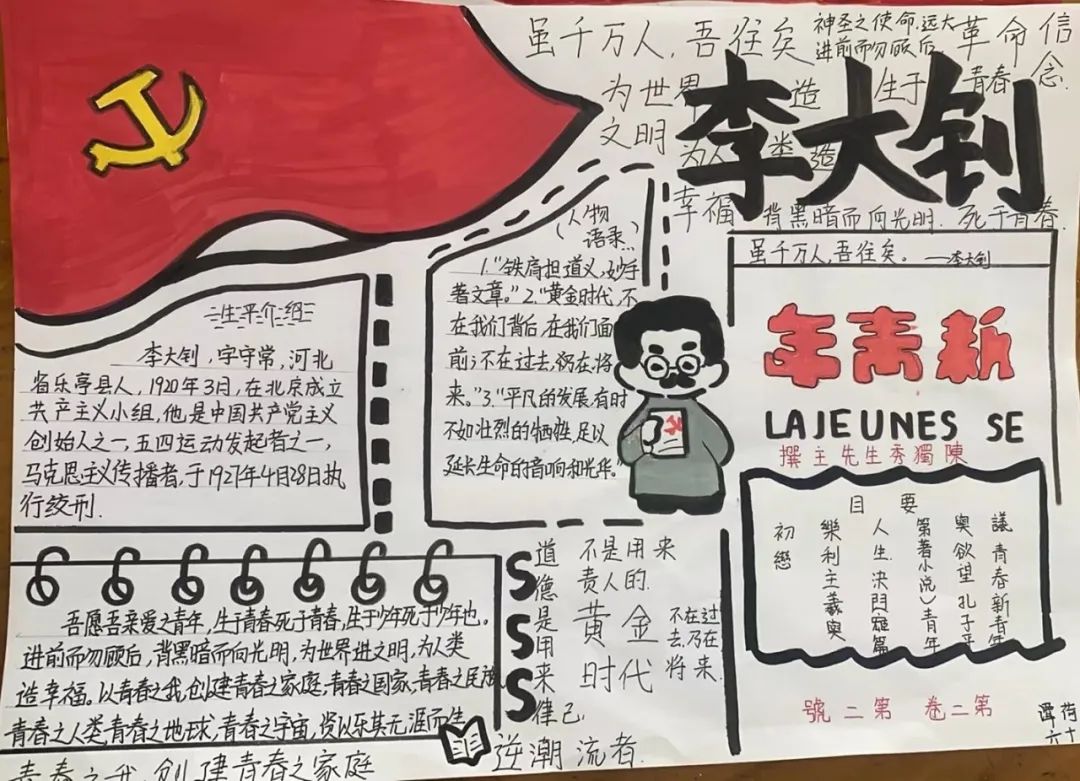 虽千万人,吾往矣
神圣之使命,远大
进前而勿顾后,
革命信
念.
为世界
造
生于
青春
文明
为人
类
造
李大钊
幸福
背黑暗而向光明.死于青春.
(人物
语录)
1."铁肩担道义,妙手
著文章。"2."黄金时代,不
在我们背后,在我们面
前;不在过去,乃在将
来。"3."平凡的发展,有时
不如壮烈的牺牲足以
延长生命的音响和光华。"
生平介绍
李大钊,字守常,河北
省乐亭县人,1920年3月,在北京成立
共产主义小组,他是中国共产党主义
创始人之一,五四运动发起者之一,
马克思主义传播者,于1927年4月28日执
行绞刑.
虽千万人,吾往矣。——李大钊
年青新
LAJEUNES SE
撰主生先秀獨陳
目要
議青春新青年
奥欲望孔子平
第著小说)青年
人生決鬥雖篇
樂利主義與
初戀
號二第 卷二第
谭荷
六十
吾愿吾亲爱之青年,生于青春死于青春,生于少年死于少年也。
进前而勿顾后,背黑暗而向光明,为世界进文明,为人类
造幸福。以青春之我,创建青春之家庭,青春之国家,青春之民族
青春之人类,青春之地球,青春之宇宙,资以乐其无涯而生
青春之我,创建青春之家庭
SSS
道德是用来律己,
不是用来
责人的.
黄金
时代
不在过
去,乃在
将来.
逆潮流者.